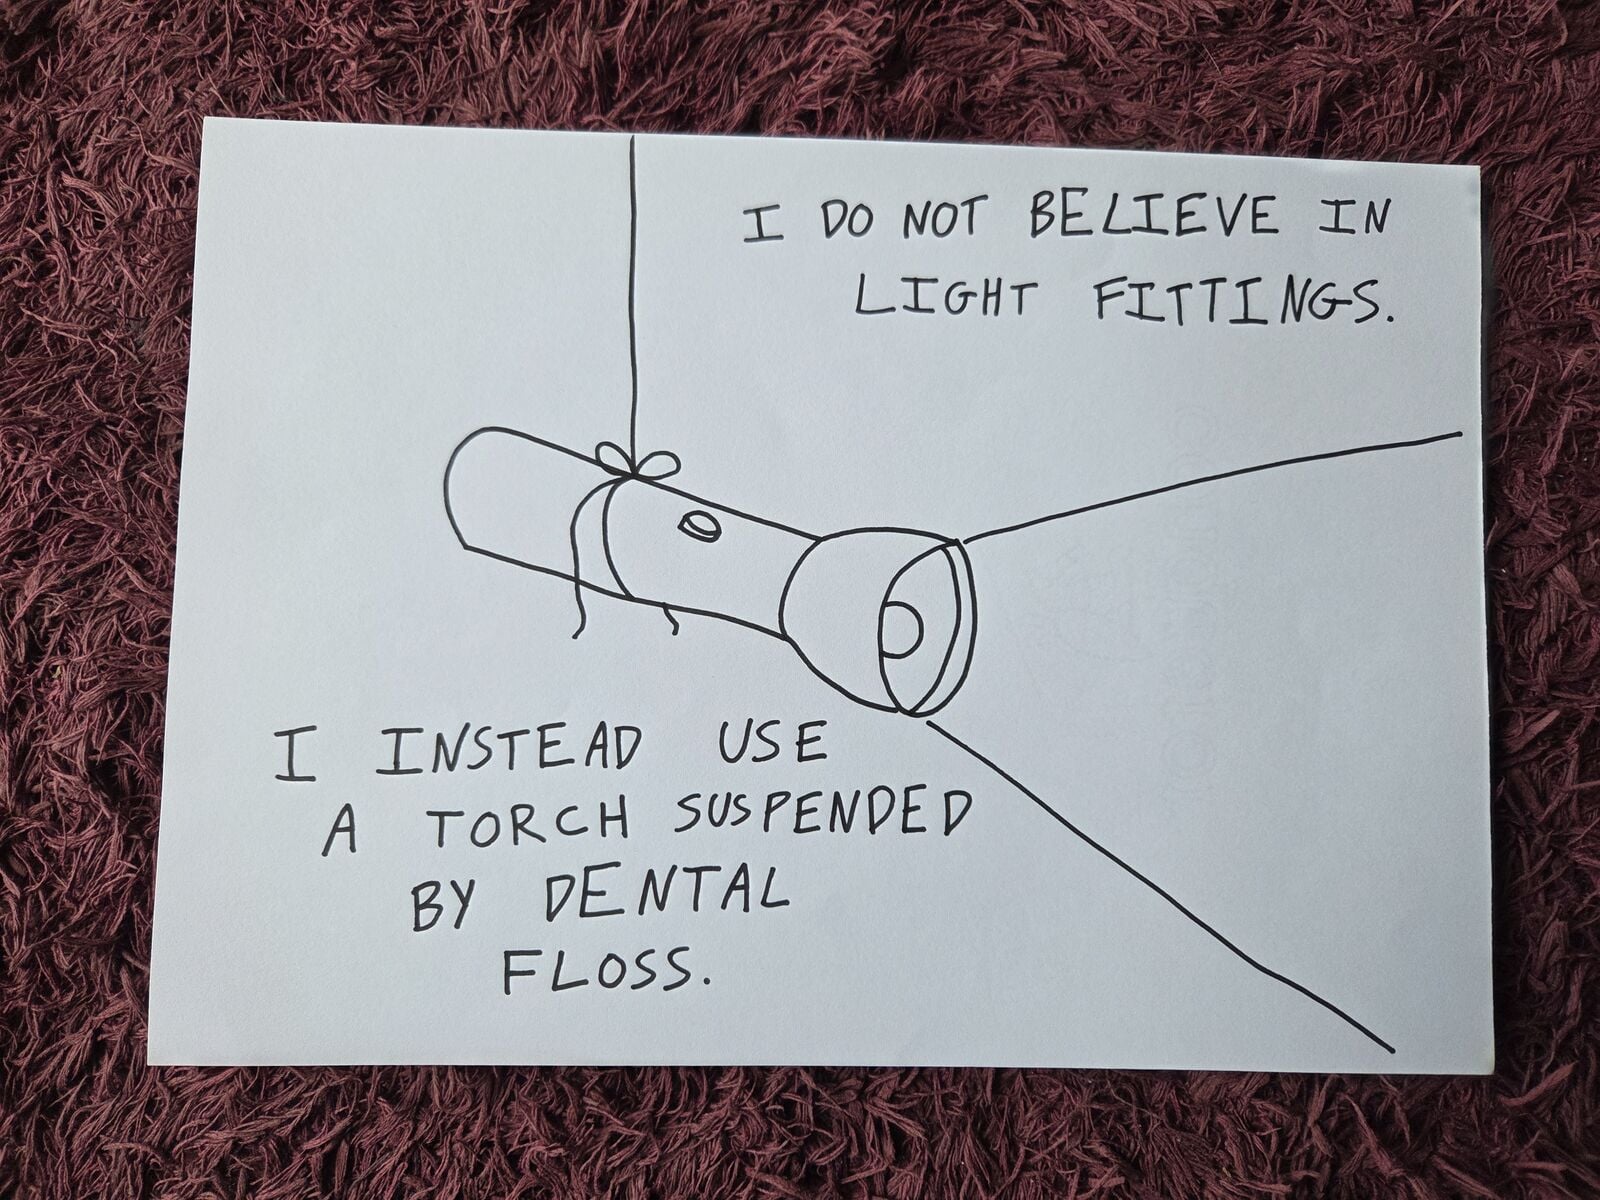 I DO NOT BELIEVE IN
LIGHT FITTINGS.
I INSTEAD USE
A TORCH SUSPENDED
BY DENTAL
FLOSS.